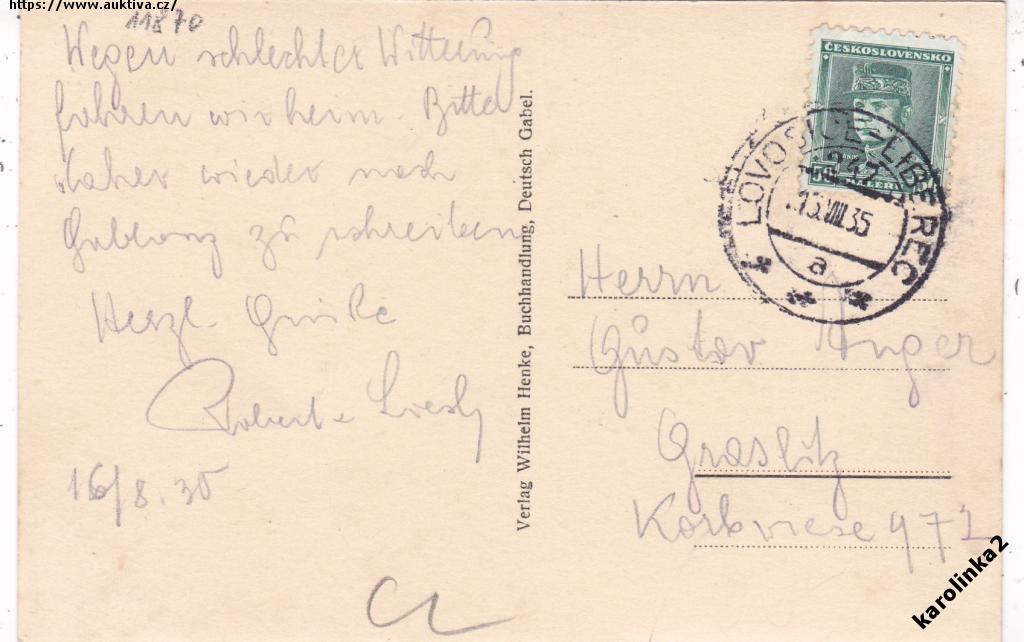 https://www.auktiva.cz/
11870
Wegen schlechter Witterung
fahren wir heim. Bitte
daher wieder nach
Gablonz zu schreiben
Herzl. Grüße
Robert
16/8.35
Verlag Wilhelm Henke, Buchhandlung, Deutsch Gabel.
ČESKOSLOVENSKO
LOVOSICE-LIBEREC
13.VIII.35
a
Herrn
Gustav Anger
Graslitz
Korbwiese 972
karolinka2